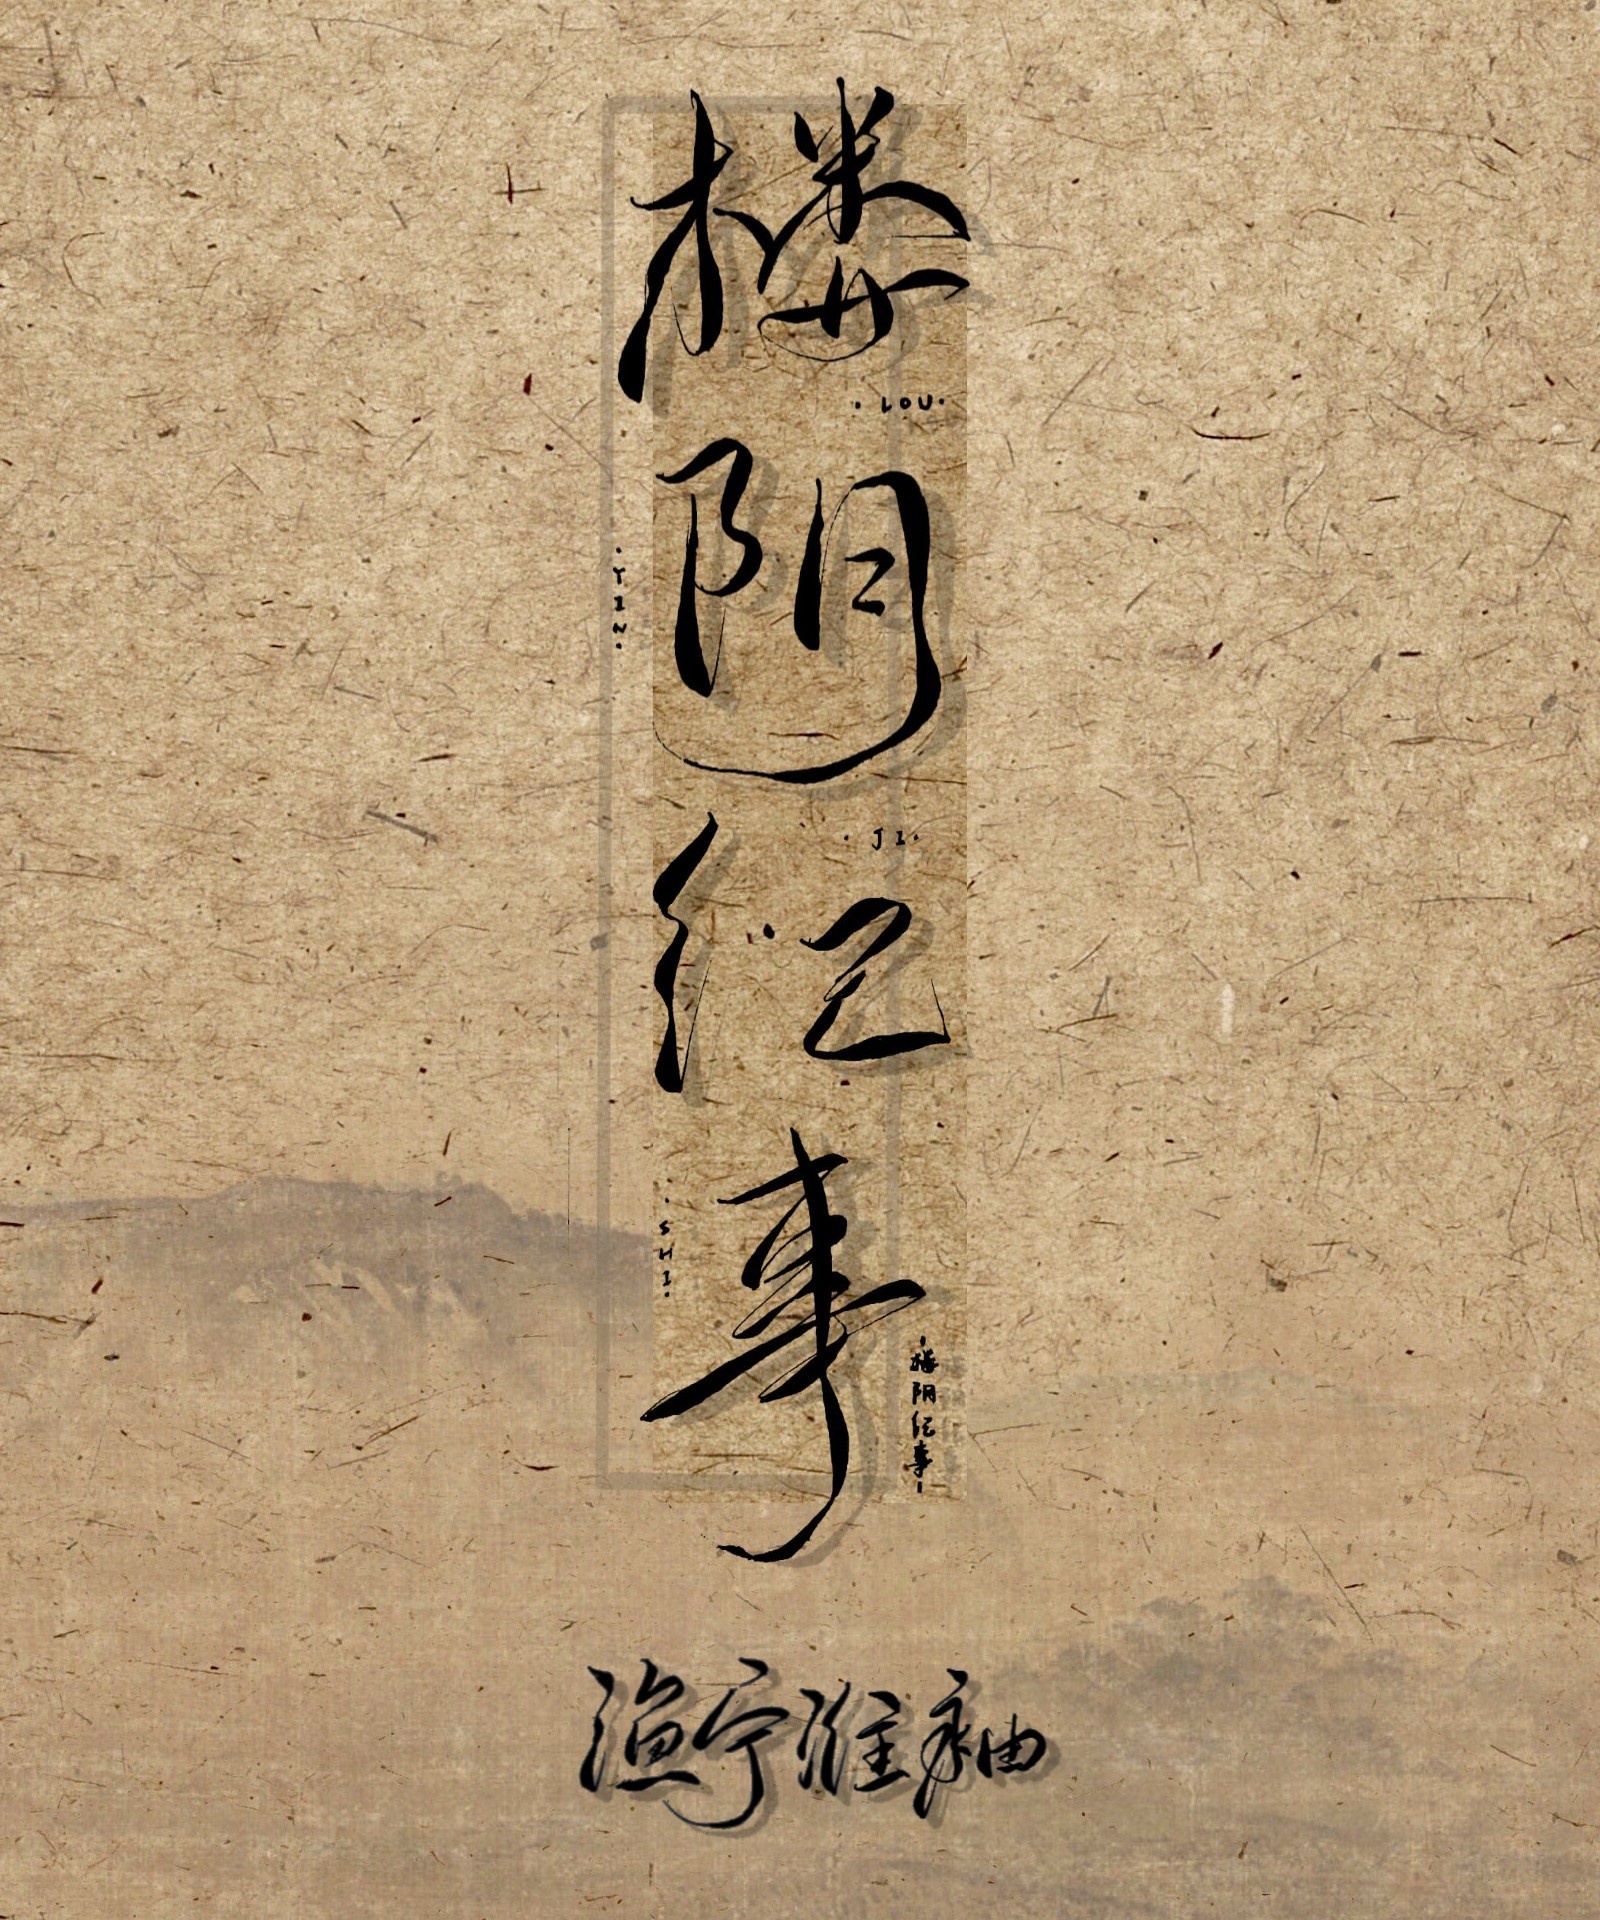 楼阴纪事
·LOU·
·YIN·
·JI·
·SHI·
·楼阴纪事-
渔宁